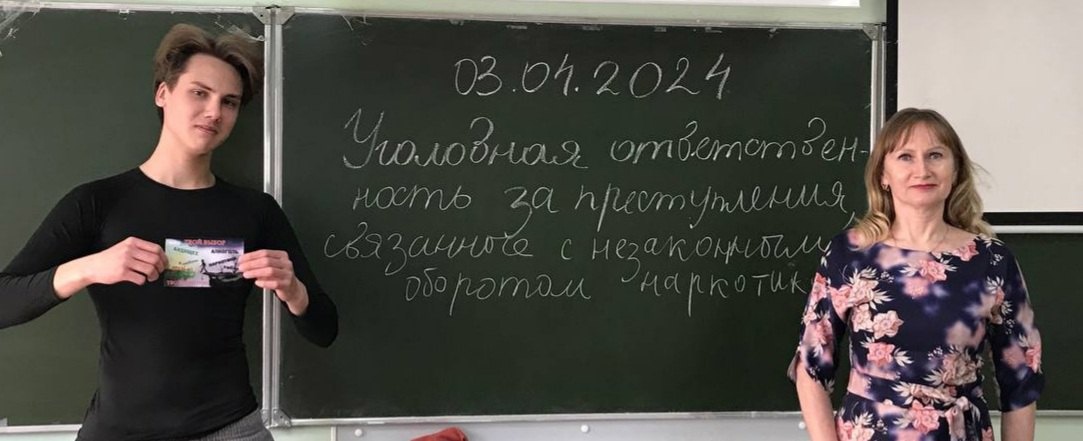 03.04.2024
Уголовная ответствен-
ность за преступления,
связанные с незаконным
оборотом наркотик
ТВОЙ ВЫБОР
АЛКОГОЛЬ
НАРКОТИКИ